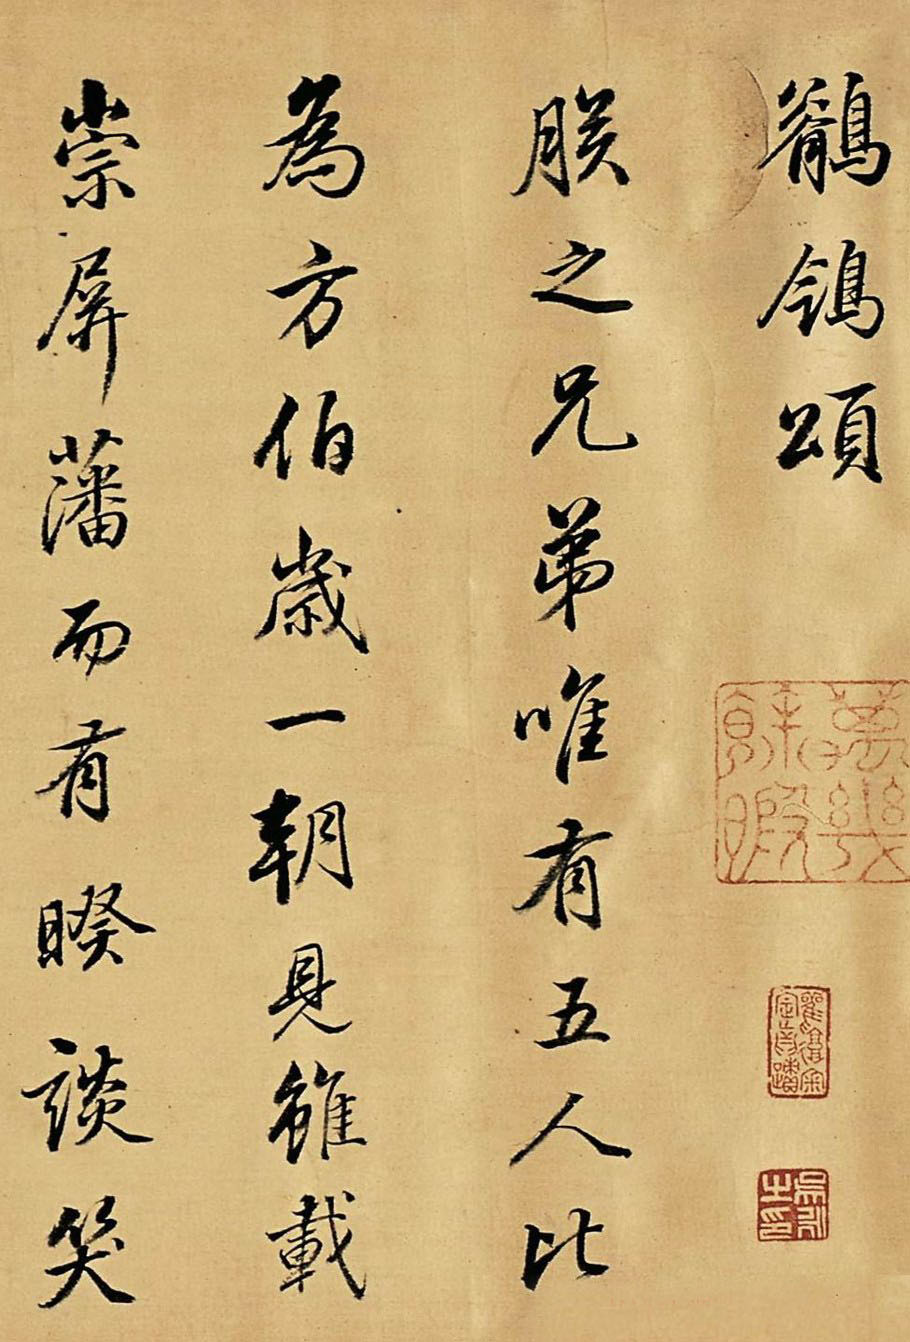 鶺鴒頌
朕之兄弟唯有五人比
為方伯歲一朝見雖載
崇屏藩而有暌談笑
萬幾餘暇